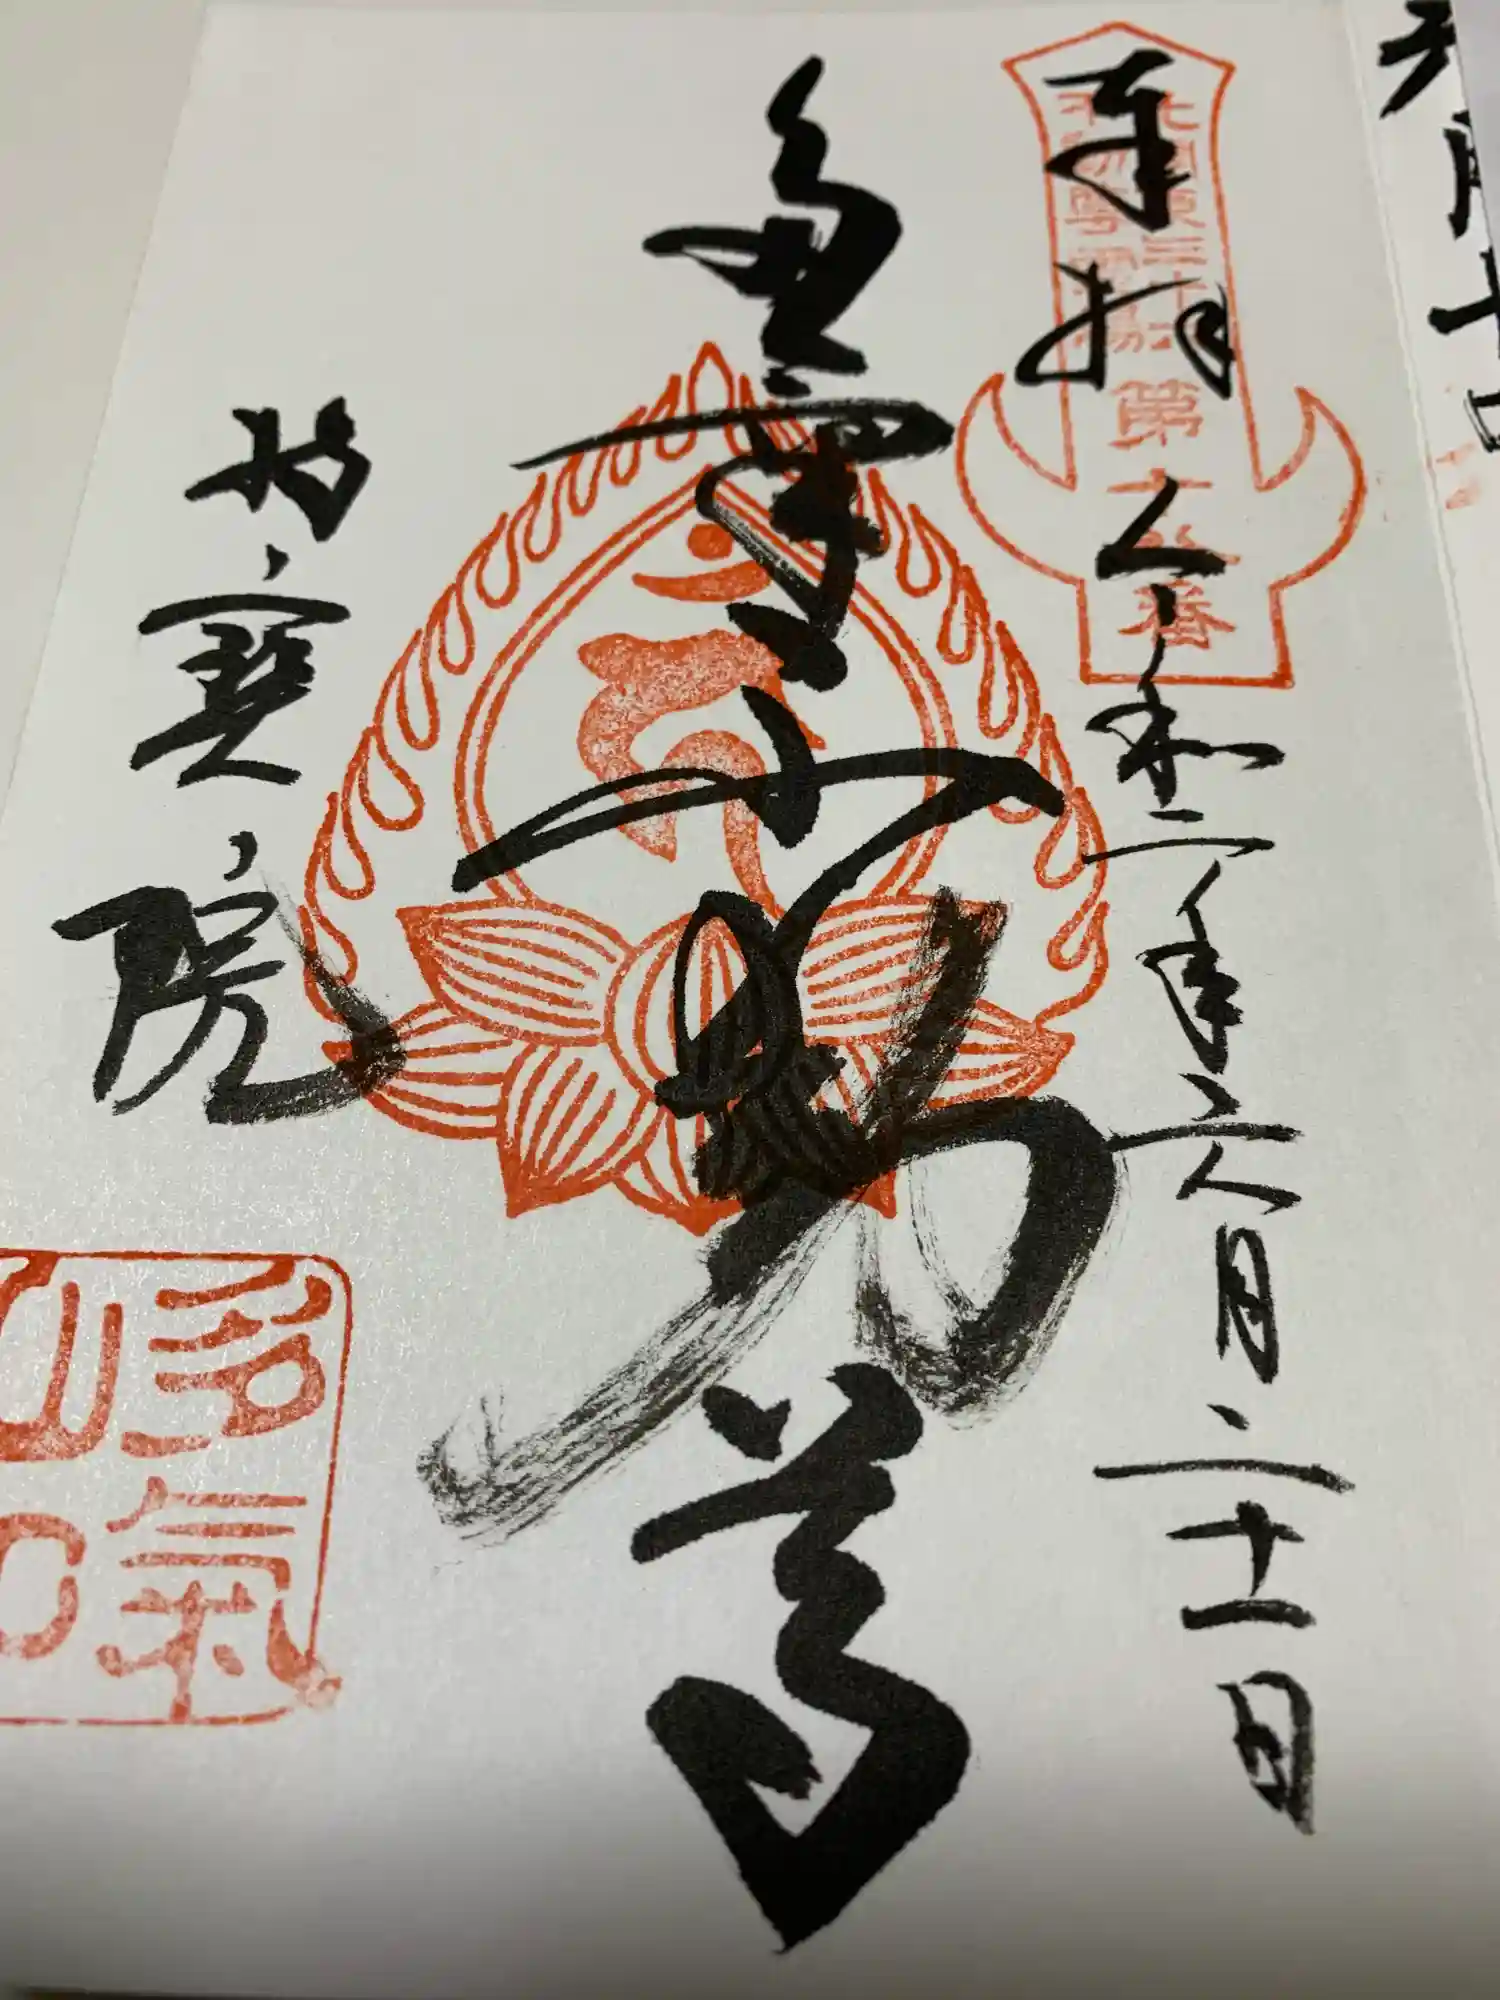 奉拝
令和二年六月二十一日
北関東三十六
不動尊霊場
第
番
不動尊
持寳院
多氣
山印